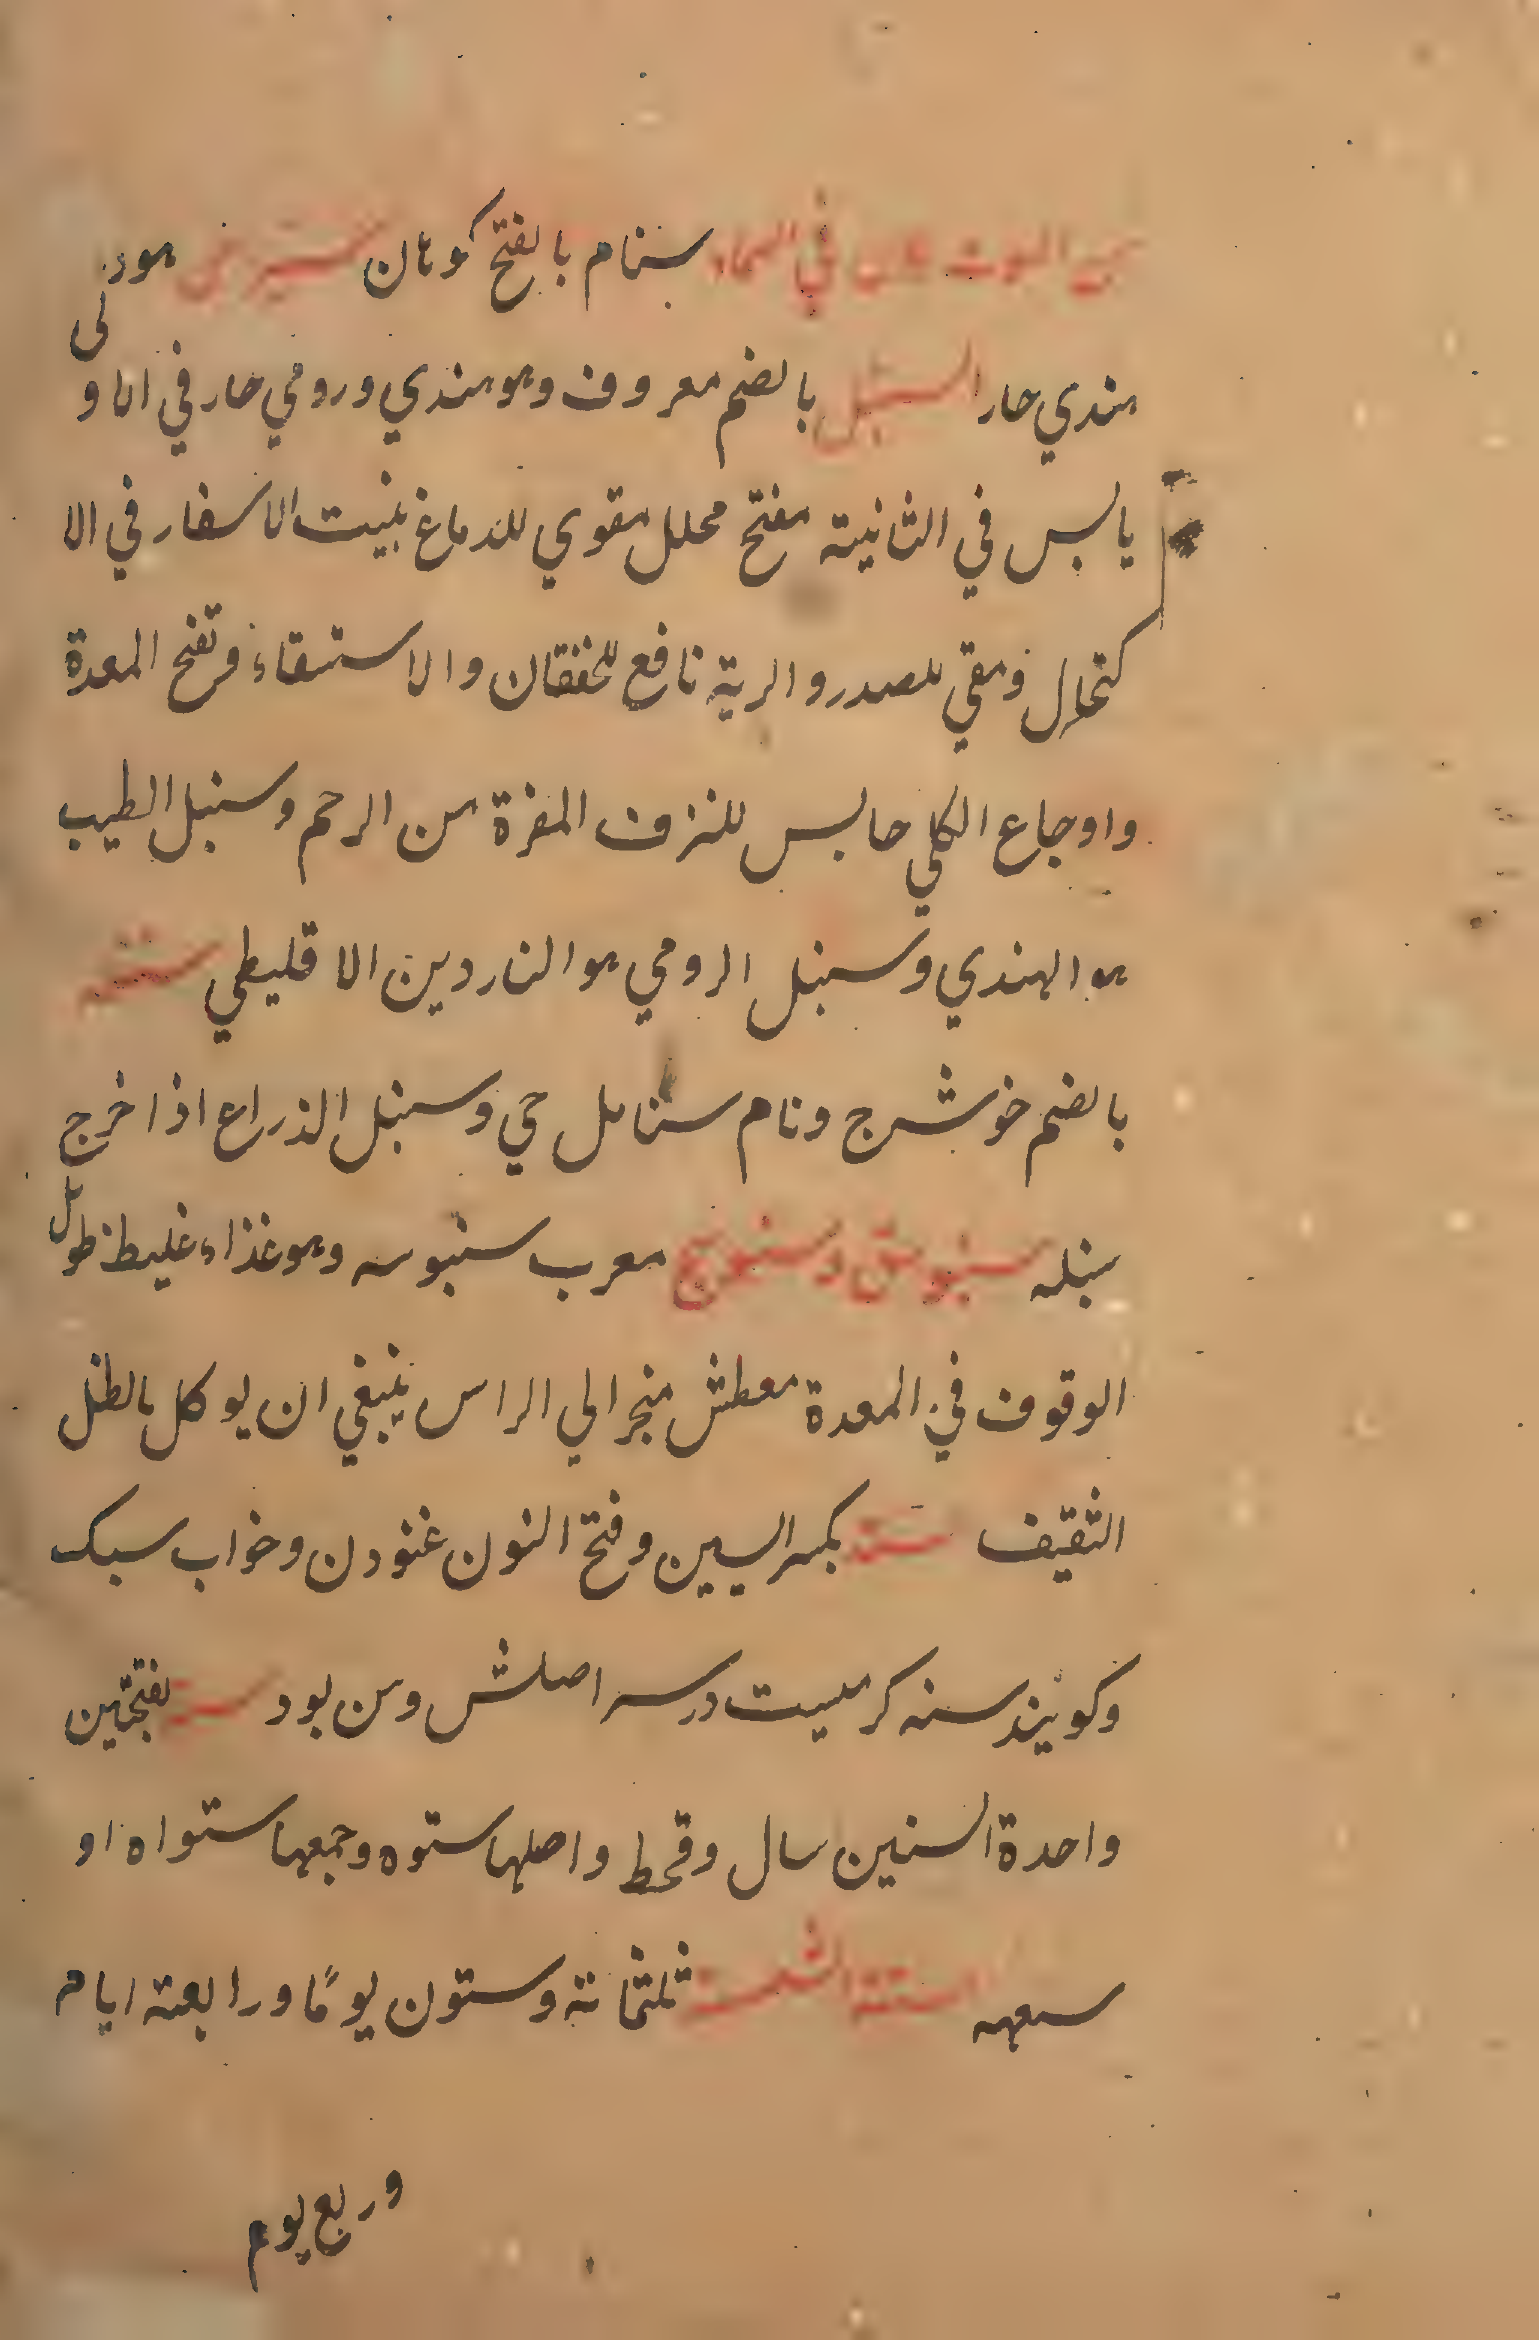 في السماء سنام بالفتح كوهان هو د
هندي حار السنبل بالضم معروف وهو هندي ورومي حار في الاولى
يابس في الثانية مفتح محلل مقوي للدماغ بنيت الاسفار في الا
كتحال ومقي للصدر والرية نافع للخفقان والاستسقاء وتفتح المعدة
واوجاع الكلي حابس للنزف المفرة من الرحم وسنبل الطيب
هو الهندي وسنبل الرومي هو الناردين الاقليطي
بالضم خوشرج ونام حي وسنبل الذراع اذا خرج
سنبله سنبوسق و معرب سنبوسه وهو غذاء غليظ طويل
الوقوف في المعدة معطش منجر الي الراس ينبغي ان يوكل بالخل
الثقيف سنة بكسر السين وفتح النون غنودن وخواب سبك
وكويند سنه كرميست در سر اصلش وسن بود سنة بفتحتين
واحدة السنين سال وقحط واصلها سنوه وجمعها سنواه او
سعهه السنة الشمسية ثلثمائة وستون يومًا ورابعة ايام
وربع يوم